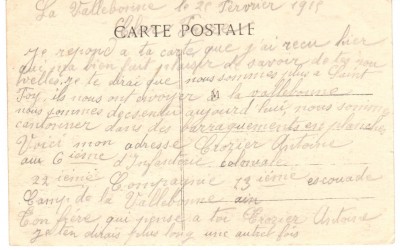 La Vallebonne le 25 Février 1915
CARTE POSTALE
Je repond a ta carte que j'ai recu hier
qui m'a bien fait plaisir de savoir de tes nou
velles. Je te dirai que nous sommes plus a Saint
Foy, ils nous ont envoyer a la vallebonne
nous sommes desendu aujourd'hui, nous somm
cantonner dans des barraquements en planches
Voici mon adresse Crozier Antoine
au 6 ième d'Infanterie coloniale
22 ième Compagnie 13 ième escouade
Camp de la Vallebonne ain
Ton frère qui pense a toi Crozier Antoine
je ten dirais plus long une autre fois